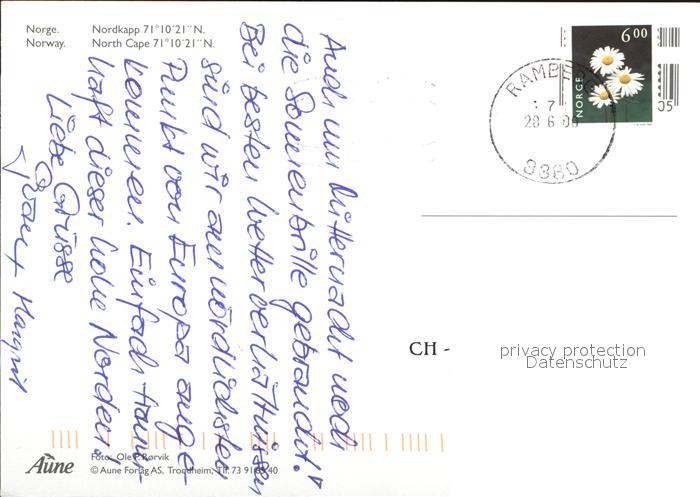 Norge. Nordkapp 71°10´21´´N.
Norway. North Cape 71°10´21´´N.
Auch um Mitternacht wird
die Sonnenbrille gebraucht!
Bei besten Wetterverhältnissen
sind wir am nördlichsten
Punkt von Europa ange-
kommen. Einfach traum-
haft dieser hohe Norden!
Liebe Grüsse
6 00
NORGE
RAMBE
28 6 00
8380
05
CH -
privacy protection
Datenschutz
Aune
Foto: Ole P. Rørvik
© Aune Forlag AS, Trondheim, Tlf. 73 91 40